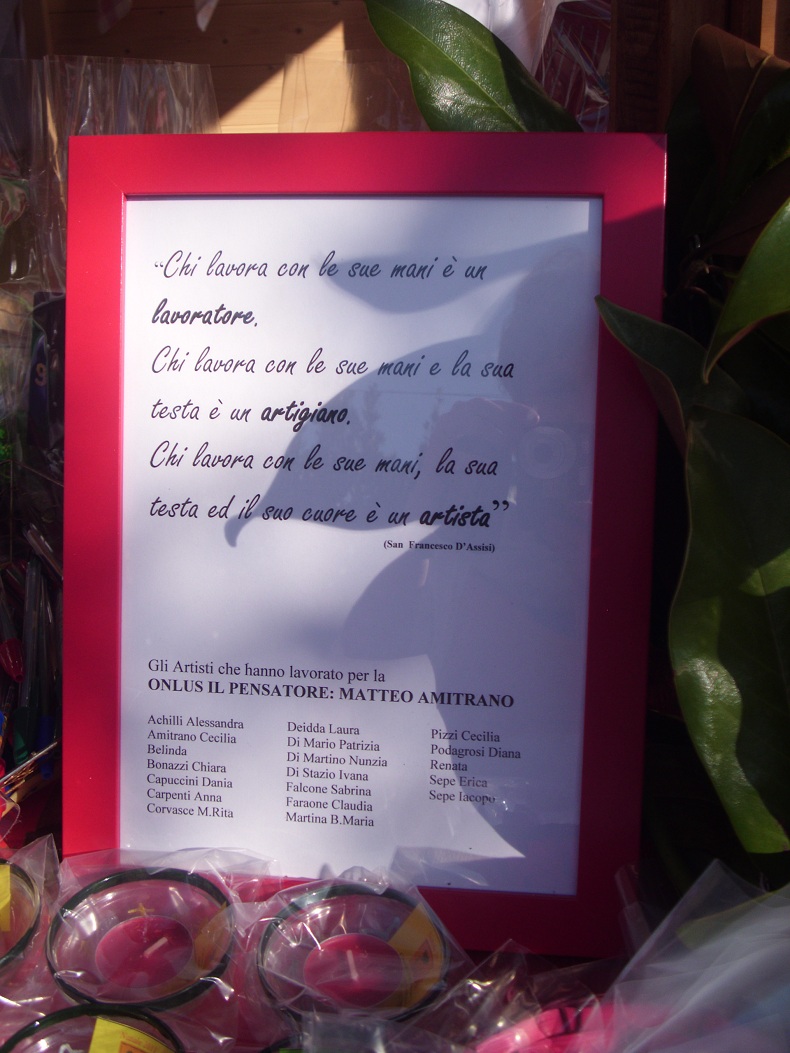 “Chi lavora con le sue mani è un
lavoratore.
Chi lavora con le sue mani e la sua
testa è un artigiano.
Chi lavora con le sue mani, la sua
testa ed il suo cuore è un artista”
(San Francesco D’Assisi)
Gli Artisti che hanno lavorato per la
ONLUS IL PENSATORE: MATTEO AMITRANO
Achilli Alessandra
Amitrano Cecilia
Belinda
Bonazzi Chiara
Capuccini Dania
Carpenti Anna
Corvasce M.Rita
Deidda Laura
Di Mario Patrizia
Di Martino Nunzia
Di Stazio Ivana
Falcone Sabrina
Faraone Claudia
Martina B.Maria
Pizzi Cecilia
Podagrosi Diana
Renata
Sepe Erica
Sepe Iacopo